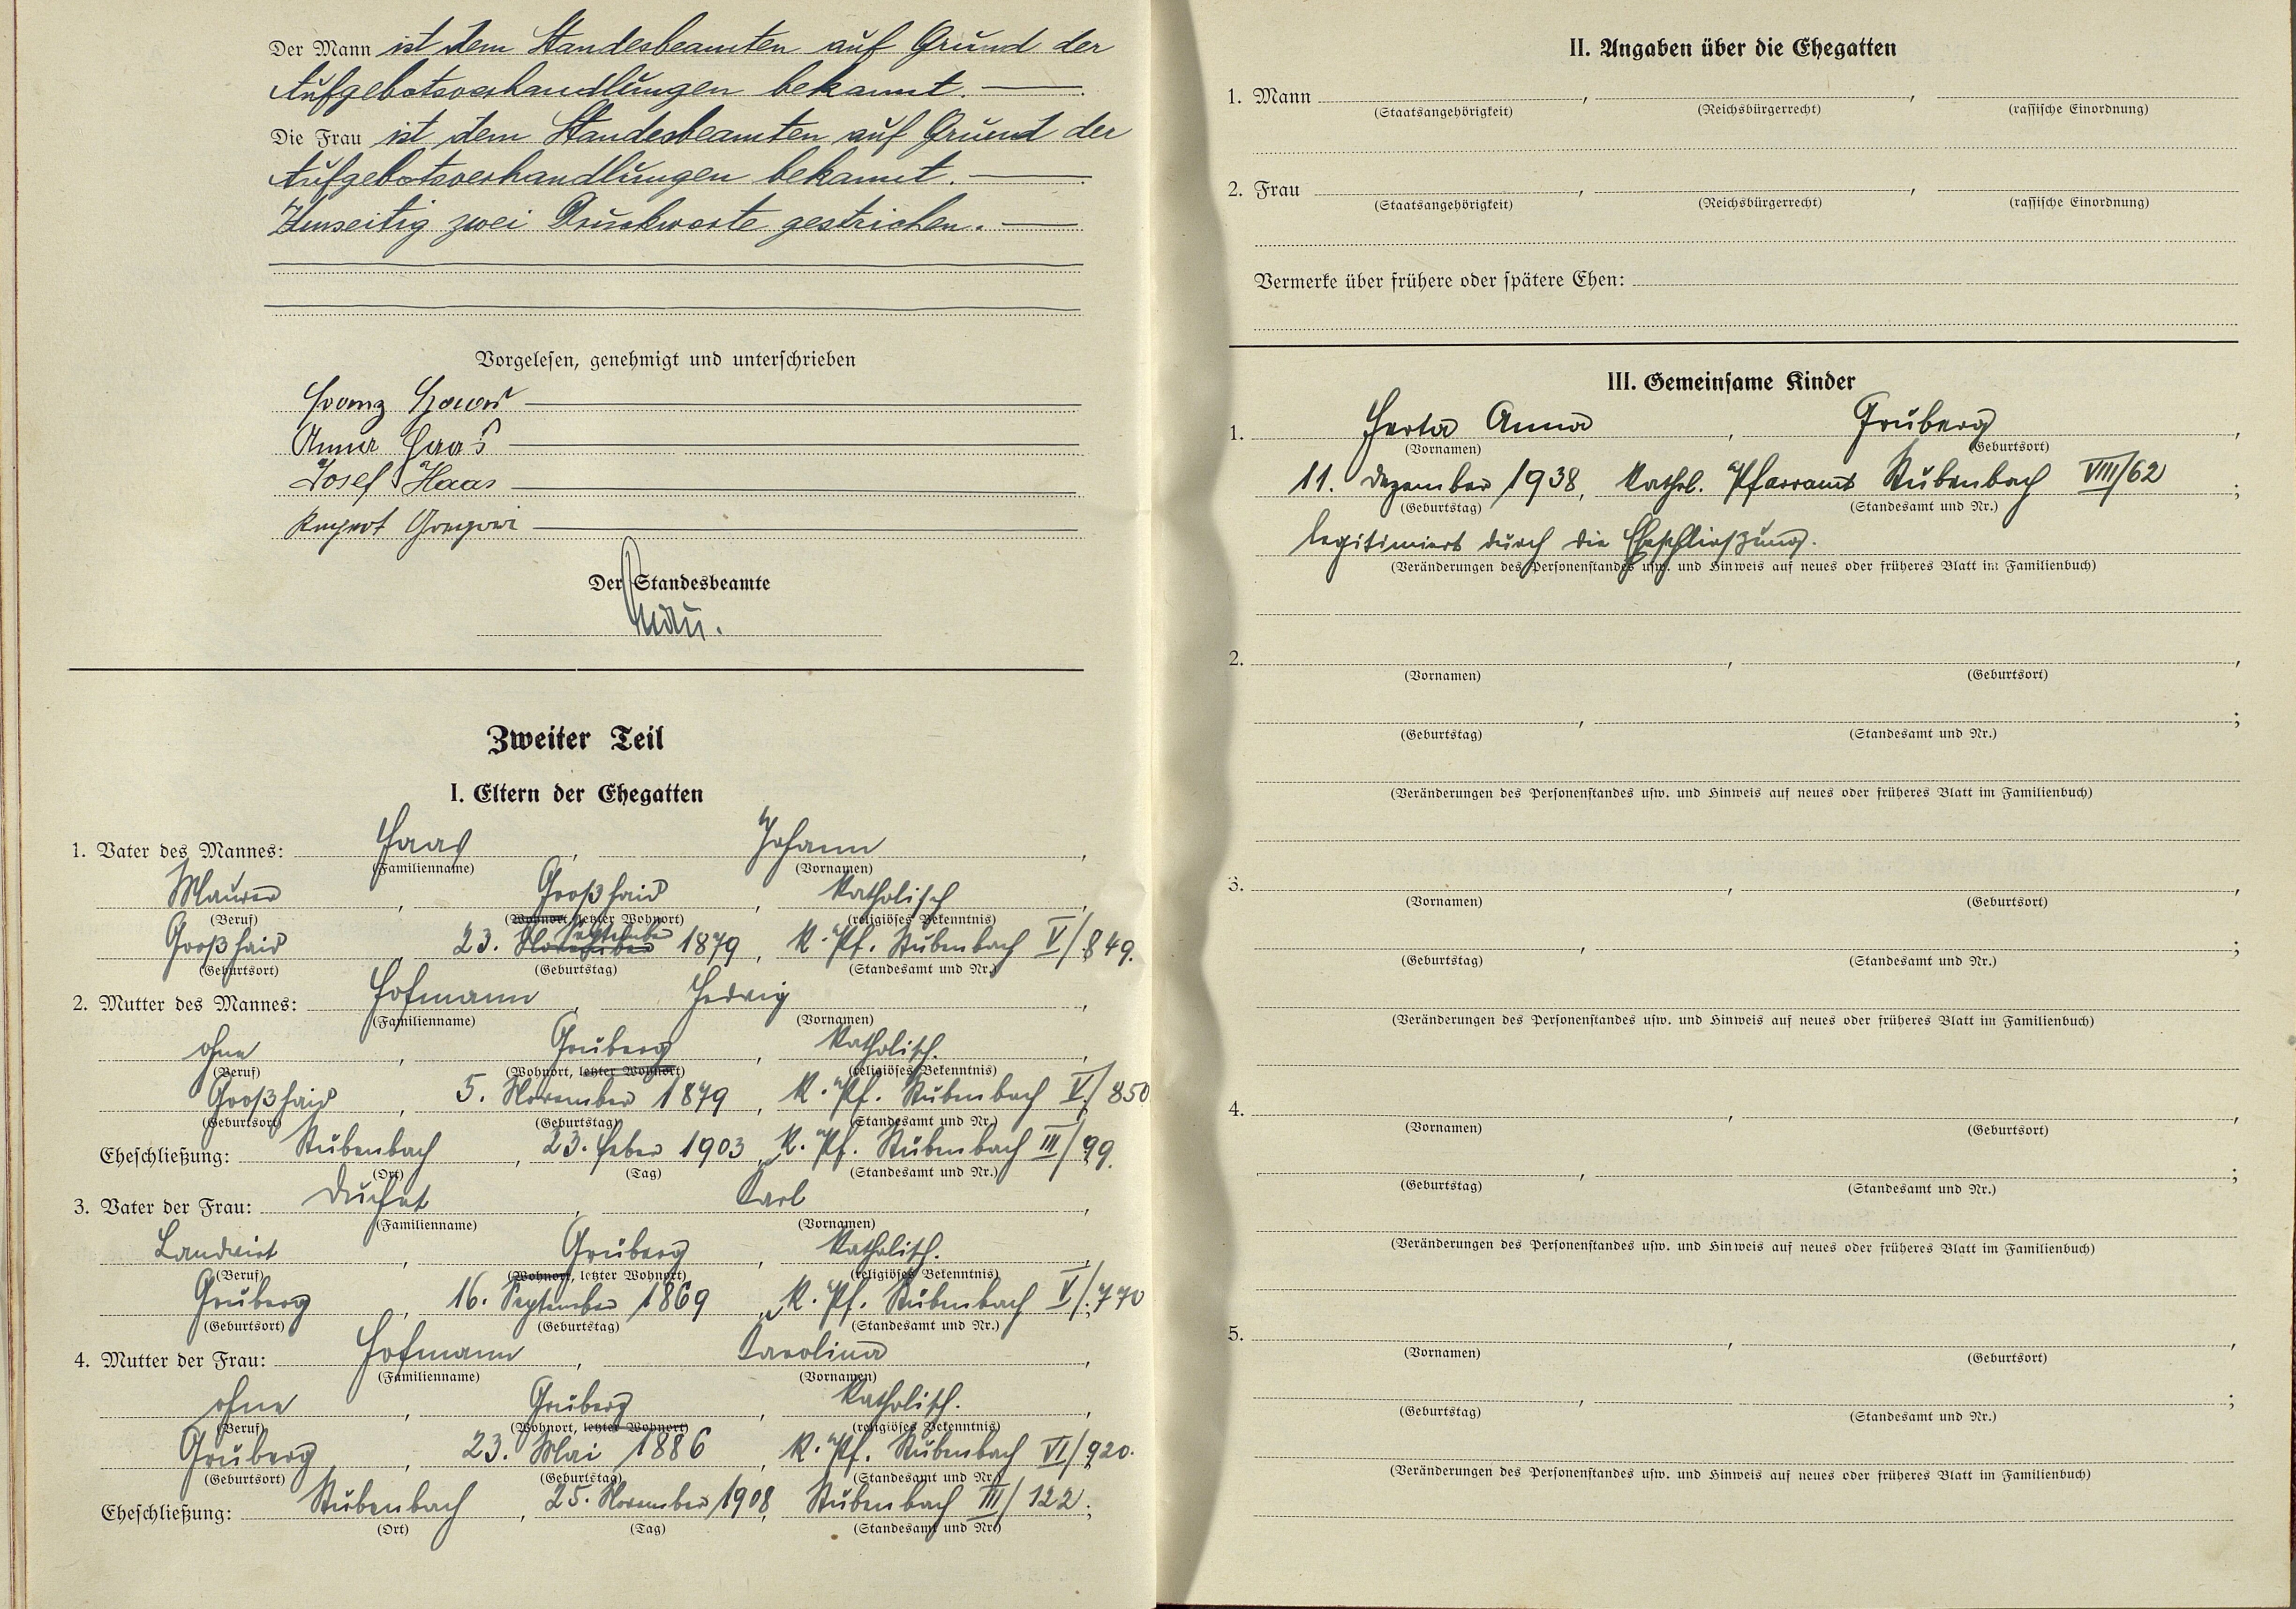 Der Mann ist dem Standesbeamten auf Grund der
Aufgebotsverhandlungen bekannt.
Die Frau ist dem Standesbeamten auf Grund der
Aufgebotsverhandlungen bekannt.
Umseitig zwei Druckworte gestrichen.
Vorgelesen, genehmigt und unterschrieben
Franz Haas
Anna Haas
Josef Haas
Rupert Gregori
Der Standesbeamte
Zweiter Teil
I. Eltern der Ehegatten
1. Vater des Mannes: Haas, Johann,
(Familienname) (Vornamen)
Maurer, Großhaid, katholisch,
(Beruf) (Wohnort, letzter Wohnort) (religiöses Bekenntnis)
September
Großhaid, 23. November 1879, K. Pf. Stubenbach V/849.
(Geburtsort) (Geburtstag) (Standesamt und Nr.)
2. Mutter des Mannes: Hofmann, Hedwig,
(Familienname) (Vornamen)
ohne, Gruberg, katholisch.,
(Beruf) (Wohnort, letzter Wohnort) (religiöses Bekenntnis)
Großhaid, 5. November 1879, K. Pf. Stubenbach V/850
(Geburtsort) (Geburtstag) (Standesamt und Nr.)
Eheschließung: Stubenbach, 23. Feber 1903, K. Pf. Stubenbach III/99.
(Ort) (Tag) (Standesamt und Nr.)
3. Vater der Frau: Duchat, Karl,
(Familienname) (Vornamen)
Landwirt, Gruberg, katholisch.,
(Beruf) (Wohnort, letzter Wohnort) (religiöses Bekenntnis)
Gruberg, 16. September 1869, K. Pf. Stubenbach V/770
(Geburtsort) (Geburtstag) (Standesamt und Nr.)
4. Mutter der Frau: Hofmann, Karolina,
(Familienname) (Vornamen)
ohne, Gruberg, katholisch.,
(Beruf) (Wohnort, letzter Wohnort) (religiöses Bekenntnis)
Gruberg, 23. Mai 1886, K. Pf. Stubenbach VI/920.
(Geburtsort) (Geburtstag) (Standesamt und Nr.)
Eheschließung: Stubenbach, 25. November 1908, Stubenbach III/122;
(Ort) (Tag) (Standesamt und Nr.)
II. Angaben über die Ehegatten
1. Mann , ,
(Staatsangehörigkeit) (Reichsbürgerrecht) (rassische Einordnung)
2. Frau , ,
(Staatsangehörigkeit) (Reichsbürgerrecht) (rassische Einordnung)
Vermerke über frühere oder spätere Ehen:
III. Gemeinsame Kinder
1. Herta Anna, Gruberg,
(Vornamen) (Geburtsort)
11. Dezember 1938, Kathol. Pfarramt Stubenbach VIII/62;
(Geburtstag) (Standesamt und Nr.)
legitimiert durch die Eheschließung.
(Veränderungen des Personenstandes usw. und Hinweis auf neues oder früheres Blatt im Familienbuch)
2. , ,
(Vornamen) (Geburtsort)
, ;
(Geburtstag) (Standesamt und Nr.)
(Veränderungen des Personenstandes usw. und Hinweis auf neues oder früheres Blatt im Familienbuch)
3. , ,
(Vornamen) (Geburtsort)
, ;
(Geburtstag) (Standesamt und Nr.)
(Veränderungen des Personenstandes usw. und Hinweis auf neues oder früheres Blatt im Familienbuch)
4. , ,
(Vornamen) (Geburtsort)
, ;
(Geburtstag) (Standesamt und Nr.)
(Veränderungen des Personenstandes usw. und Hinweis auf neues oder früheres Blatt im Familienbuch)
5. , ,
(Vornamen) (Geburtsort)
, ;
(Geburtstag) (Standesamt und Nr.)
(Veränderungen des Personenstandes usw. und Hinweis auf neues oder früheres Blatt im Familienbuch)